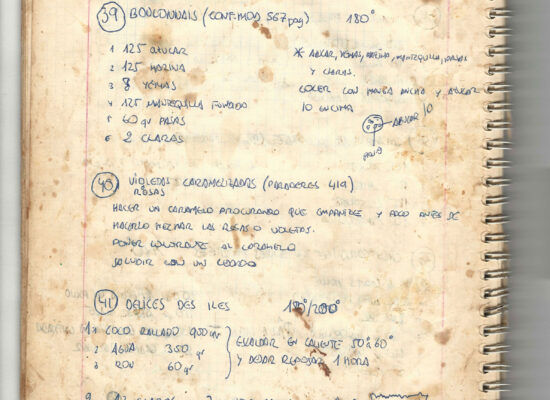 39 BOULONNAIS (CONF. MOD 567 pag) 180°
1 125 AZUCAR
2 125 HARINA
3 8 YEMAS
4 125 MANTEQUILLA FUNDIDO
5 60 gr PASAS
6 2 CLARAS
* AZUCAR, YEMAS, HARINA, MANTEQUILLA, PASAS
Y CLARAS.
COCER CON MANGA ANCHO Y AZUCAR
10 ENCIMA
AZUCAR 10
pasa
40 VIOLETAS CARAMELIZADAS (PANADERES 419)
ROSAS
HACER UN CARAMELO PROCURANDO QUE EMPANIZE Y POCO ANTES DE
HACERLO MEZCLAR LAS ROSAS O VIOLETAS.
PONER COLORANTE AL CARAMELO
SACUDIR CON UN CEDAZO
41 DELICES DES ILES 180°/200°
1 COCO RALLADO 950 gr
2 AGUA 350 gr
3 RON 60 gr
ESCALDAR EN CALIENTE 50° á 60°
Y DEJAR REPOSAR 1 HORA